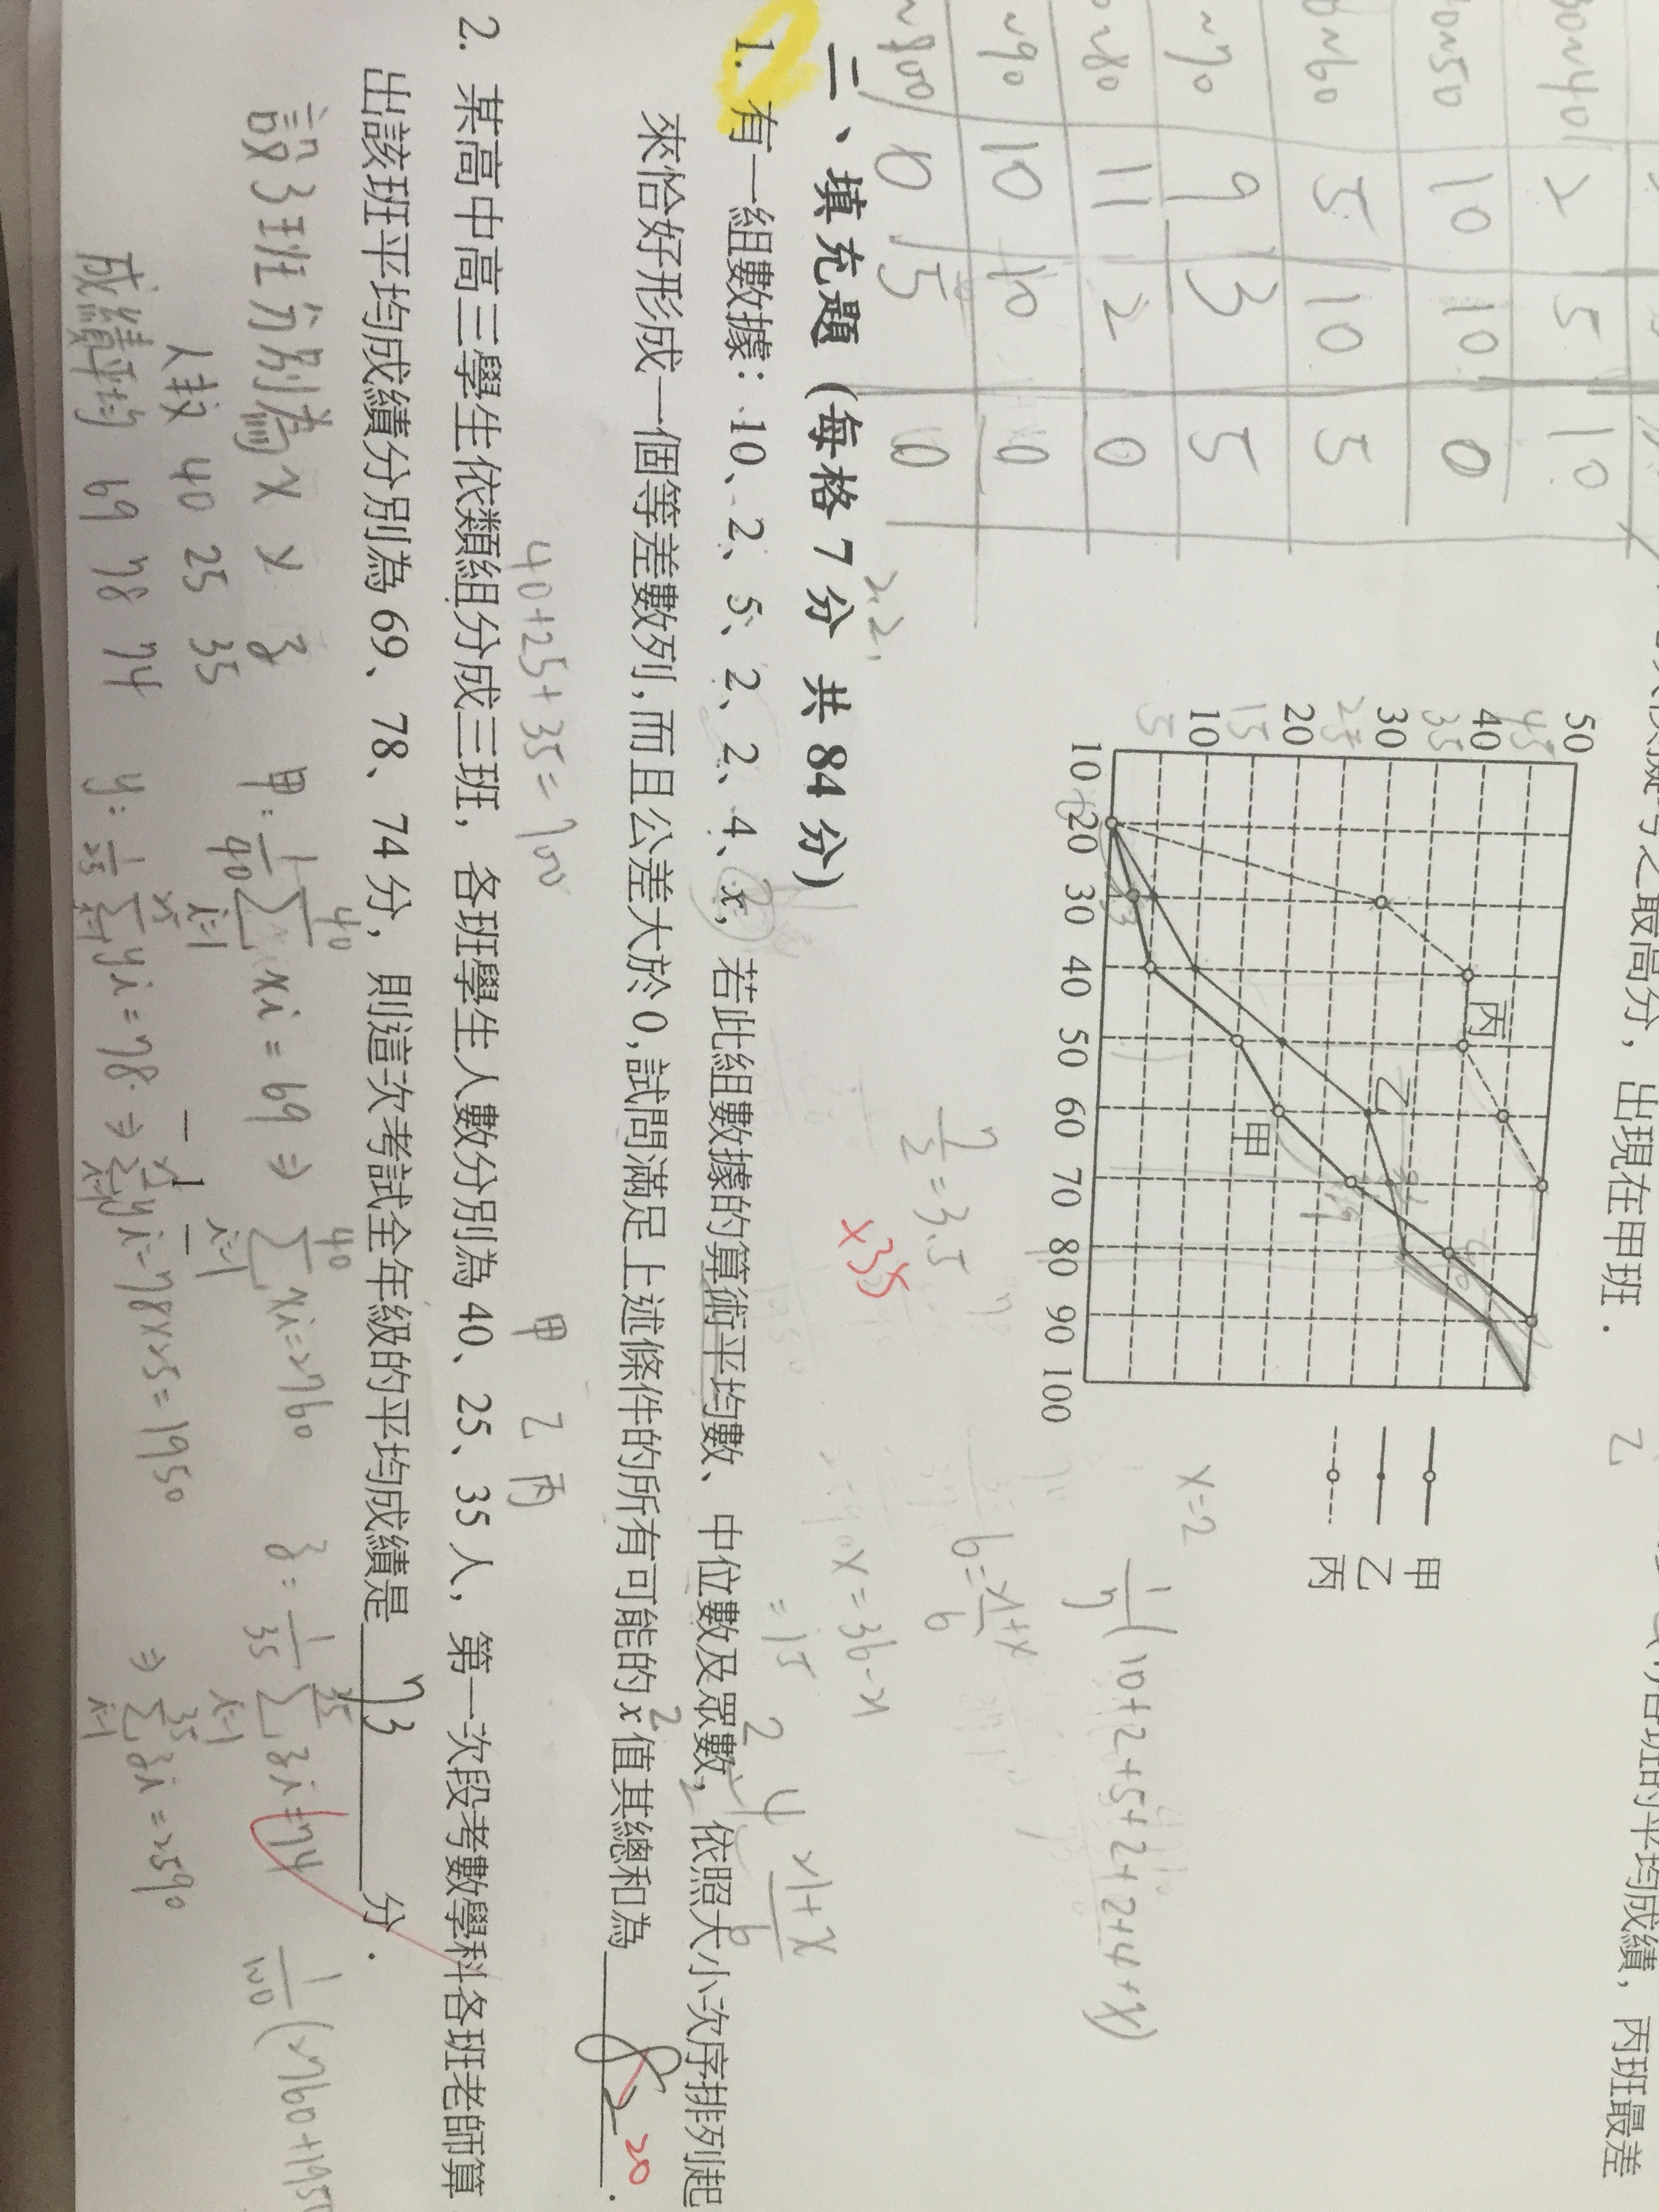 ，出現在甲班．
乙
班的平均成績，丙班最差
50
40
30
20
10
45
35
25
15
5
10 20 30 40 50 60 70 80 90 100
丙
乙
甲
甲
乙
丙
30~40 2 5 10
10 10 0
5 10 5
~70 9 3 5
~80 11 2 0
~90 10 10 0
~100 0 5 0
x=2
1/7(10+2+5+2+2+4+x)
7/2=3.5
×35
二、填充題（每格 7 分 共 84 分）
1. 有一組數據：10、2、5、2、2、4、x，若此組數據的算術平均數、中位數及眾數，依照大小次序排列起
來恰好形成一個等差數列，而且公差大於 0，試問滿足上述條件的所有可能的 x 值其總和為
20
40+25+35=100
甲 乙 丙
2. 某高中高三學生依類組分成三班，各班學生人數分別為 40、25、35 人，第一次段考數學科各班老師算
出該班平均成績分別為 69、78、74 分，則這次考試全年級的平均成績是 73 分．
設3班分別為 x y z
人數 40 25 35
成績平均 69 78 74
甲: 1/40 Σ xi = 69 ⇒ Σ xi=2760
y: 1/25 Σ yi = 78 ⇒ Σ yi=78×25=1950
z: 1/35 Σ zi=74
⇒ Σ zi=2590
1/100(2760+1950